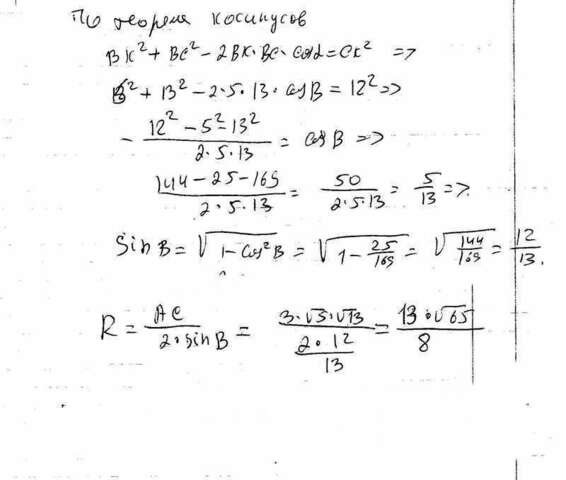 По теореме косинусов
BK² + BC² - 2BK·BC·cosα = CK² =>
5² + 13² - 2·5·13·cosB = 12² =>
- (12² - 5² - 13²)/(2·5·13) = cosB =>
(144 - 25 - 169)/(2·5·13) = 50/(2·5·13) = 5/13 =>.
SinB = √(1 - cos²B) = √(1 - 25/169) = √(144/169) = 12/13.
R = AC/(2·sinB) = (3·√5·√13)/((2·12)/13) = (13·√65)/8